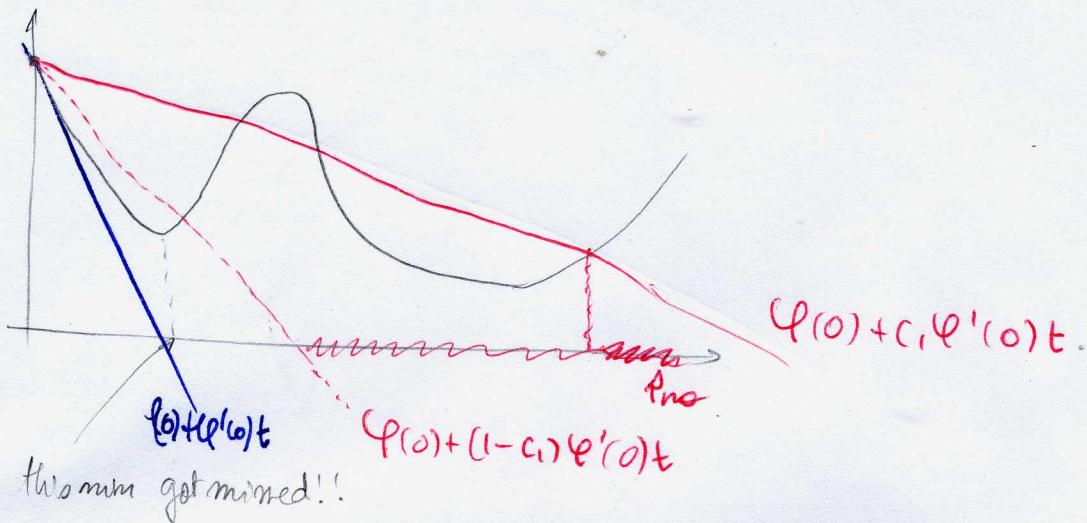 φ(0) + c₁ φ'(0) t
φ(0) + φ'(0) t
φ(0) + (1 - c₁) φ'(0) t
this min got missed!!